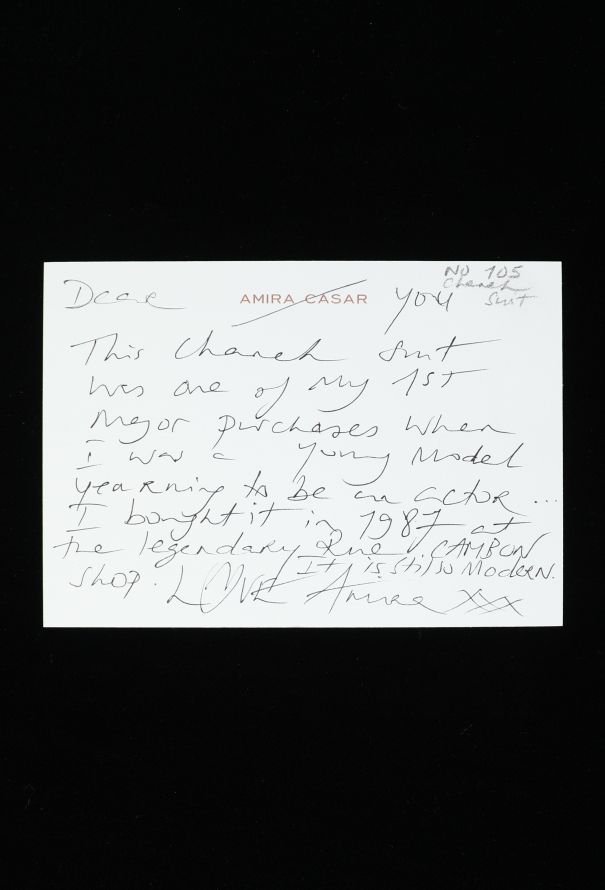 No 105
Chanel
Suit
Dear AMIRA CASAR you
This Chanel Suit
was one of my 1st
Major purchases when
I was a young Model
yearning to be an actor ...
I bought it in 1987 at
the legendary Rue CAMBON
shop. It is still so Modern.
LOVE Amira xxx